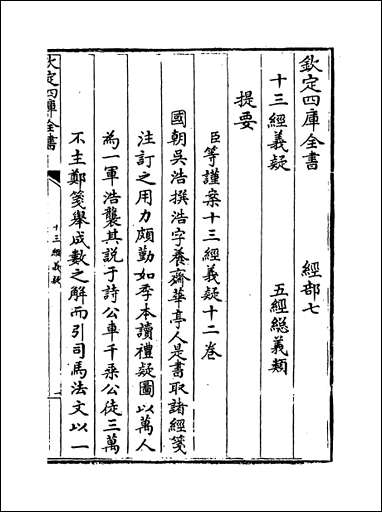 欽定四庫全書 經部七
十三經義疑 五經總義類
提要
臣等謹案十三經義疑十二卷
國朝吳浩撰浩字養齋華亭人是書取諸經箋
注訂之用力頗勤如季本讀禮疑圖以萬人
為一軍浩襲其説于詩公車千乘公徒三萬
不主鄭箋舉成數之解而引司馬法文以一
欽定四庫全書
十三經義疑
一